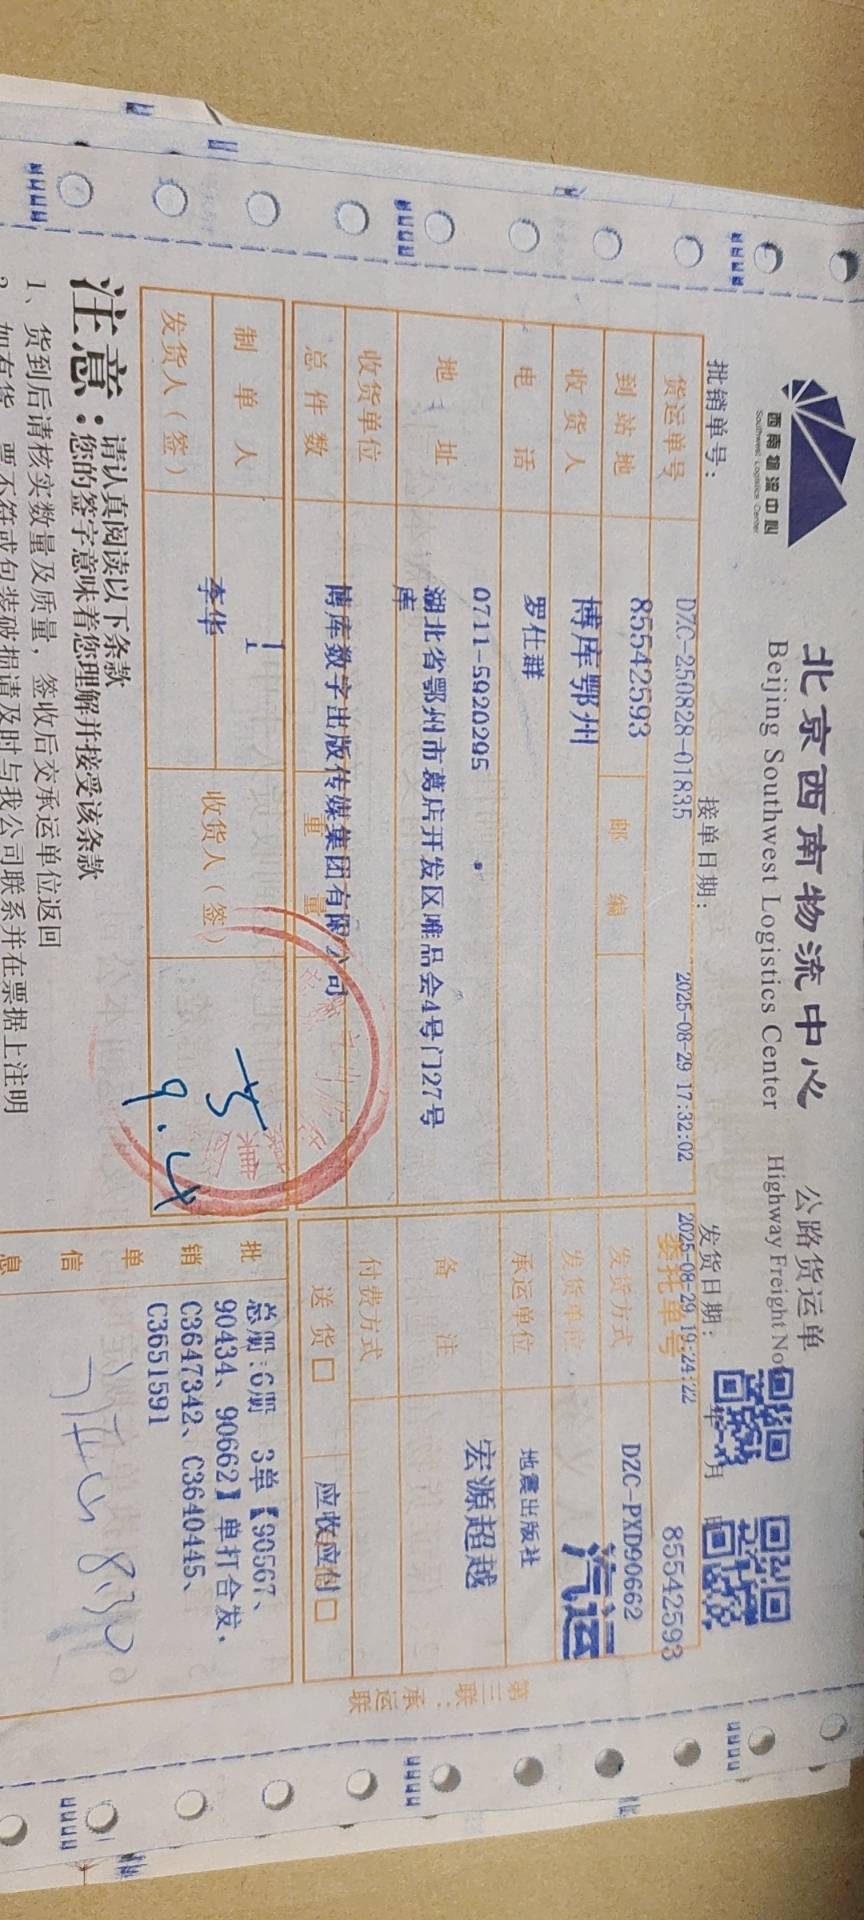 西南物流中心
Southwest Logistics Center
北京西南物流中心 公路货运单
Beijing Southwest Logistics Center Highway Freight Note
批销单号： 接单日期： 2025-08-29 17:32:02 发货日期： 2025-08-29 19:24:22 年 月
货运单号 DZC-250828-01835 委托单号 85542593
到站地 85542593 邮编 发货方式 DZC-PXD90662
收货人 博库鄂州 发货单位 汽运
电话 罗仕群 承运单位 地震出版社
地址 0711-5920295 备注 宏源超越
湖北省鄂州市葛店开发区唯品会4号门27号
库
收货单位 付费方式
总件数 博库数字出版传媒集团有限公司 重量 送货□ 应收应付□
制单人 1 收货人（签）
发货人（签） 李华 9.4
批销单信息
总册:6册 3单【90567、
90434、90662】单打合发,
C3647342、C3640445、
C3651591
8.30
第三联：承运联
注意：请认真阅读以下条款
您的签字意味着您理解并接受该条款
1、货到后请核实数量及质量，签收后交承运单位返回
2、如有货、票不符或包装破损请及时与我公司联系并在票据上注明